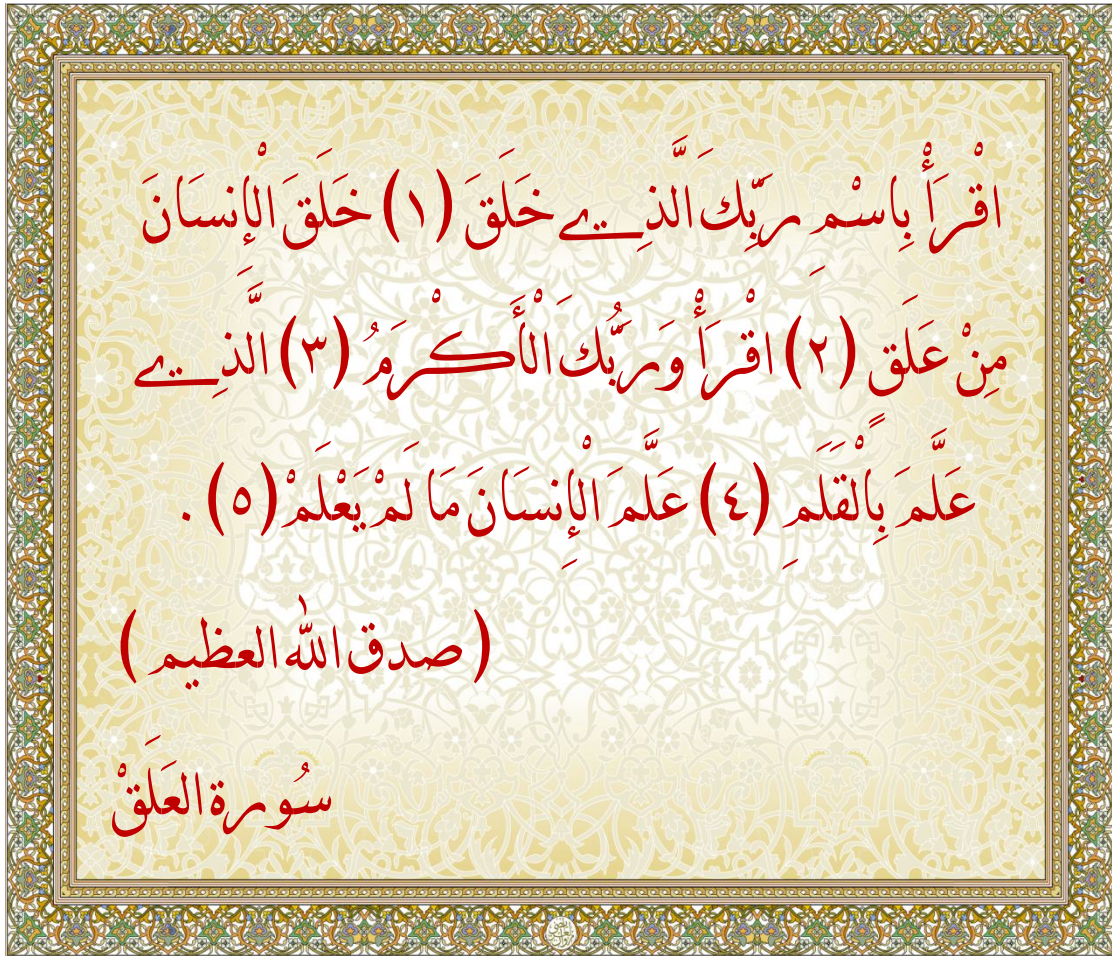 اقْرَأْ بِاسْمِ رَبِّكَ الَّذِي خَلَقَ (١) خَلَقَ الْإِنسَانَ
مِنْ عَلَقٍ (٢) اقْرَأْ وَرَبُّكَ الْأَكْرَمُ (٣) الَّذِي
عَلَّمَ بِالْقَلَمِ (٤) عَلَّمَ الْإِنسَانَ مَا لَمْ يَعْلَمْ (٥) .
(صدق الله العظيم)
سُورة العَلَقْ